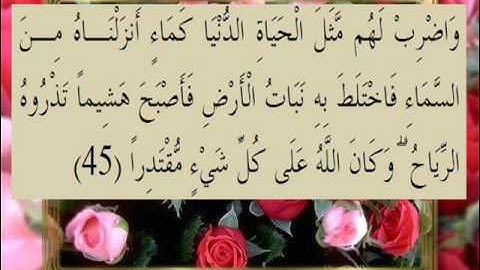 وَاضْرِبْ لَهُم مَّثَلَ الْحَيَاةِ الدُّنْيَا كَمَاءٍ أَنزَلْنَـــاهُ مِـــنَ
السَّمَاءِ فَاخْتَلَطَ بِهِ نَبَاتُ الْأَرْضِ فَأَصْبَحَ هَشِيماً تَذْرُوهُ
الرِّيَاحُ ۗ وَكَانَ اللَّهُ عَلَى كُلِّ شَيْءٍ مُّقْتَدِراً (45)